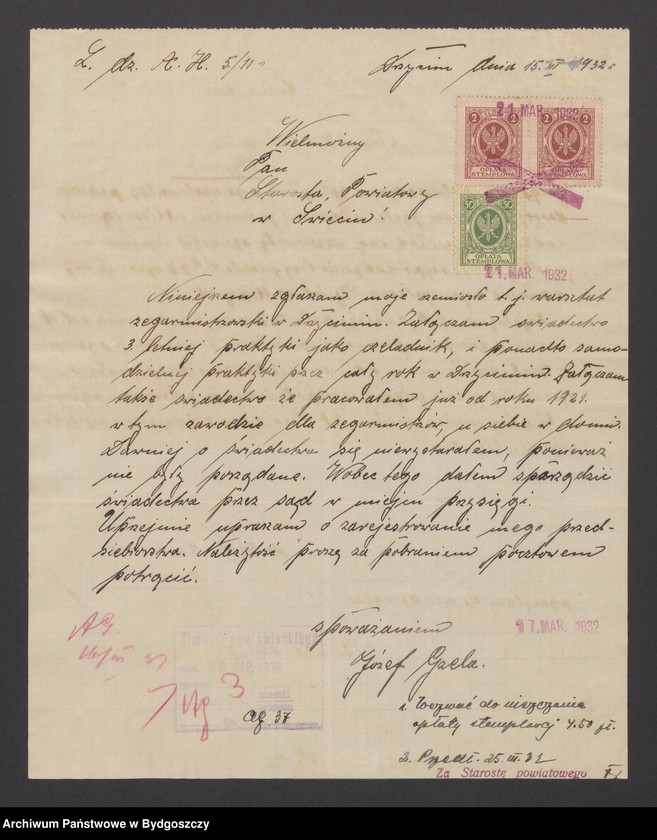 L. dz. A. H. 5/11
Drzycim dnia 15. III 1932 r
21. MAR. 1932
2 2 2 2
OPŁATA STEMPLOWA
OPŁATA STEMPLOWA
Wielmożny
Pan
Starosta, Powiatowy
w Świeciu!
50 50
OPŁATA STEMPLOWA
21. MAR. 1932
Niniejszem zgłaszam moje rzemiosło t. j. warsztat
zegarmistrzowski w Drzycimin. Załączam świadectwo
3 letniej praktyki jako czeladnik, i ponadto samo-
dzielnej praktyki przez cały rok w Drzycimin. Załączam
także świadectwo że pracowałem już od roku 1921.
w tym zawodzie dla zegarmistrzów, u siebie w domu.
Dawniej o świadectwa się niewystarałem, ponieważ
nie były porządane. Wobec tego dałem sparządzić
świadectwa przez sąd w miejscu przysięgi.
Uprzejmie upraszam o zarejestrowanie mego przed-
siebiorstwa. Należytość proszę za pobraniem pocztowem
potrącić.
spoważaniem
17. MAR. 1932
Józef Gzela.
MAR. 1932
3
Ag 37
1. Wezwać do uiszczenia
opłaty stemplowej 4.50 zł.
2. Przedł. 25. III. 32
Za Starostę powiatowego
Archiwum Państwowe w Bydgoszczy